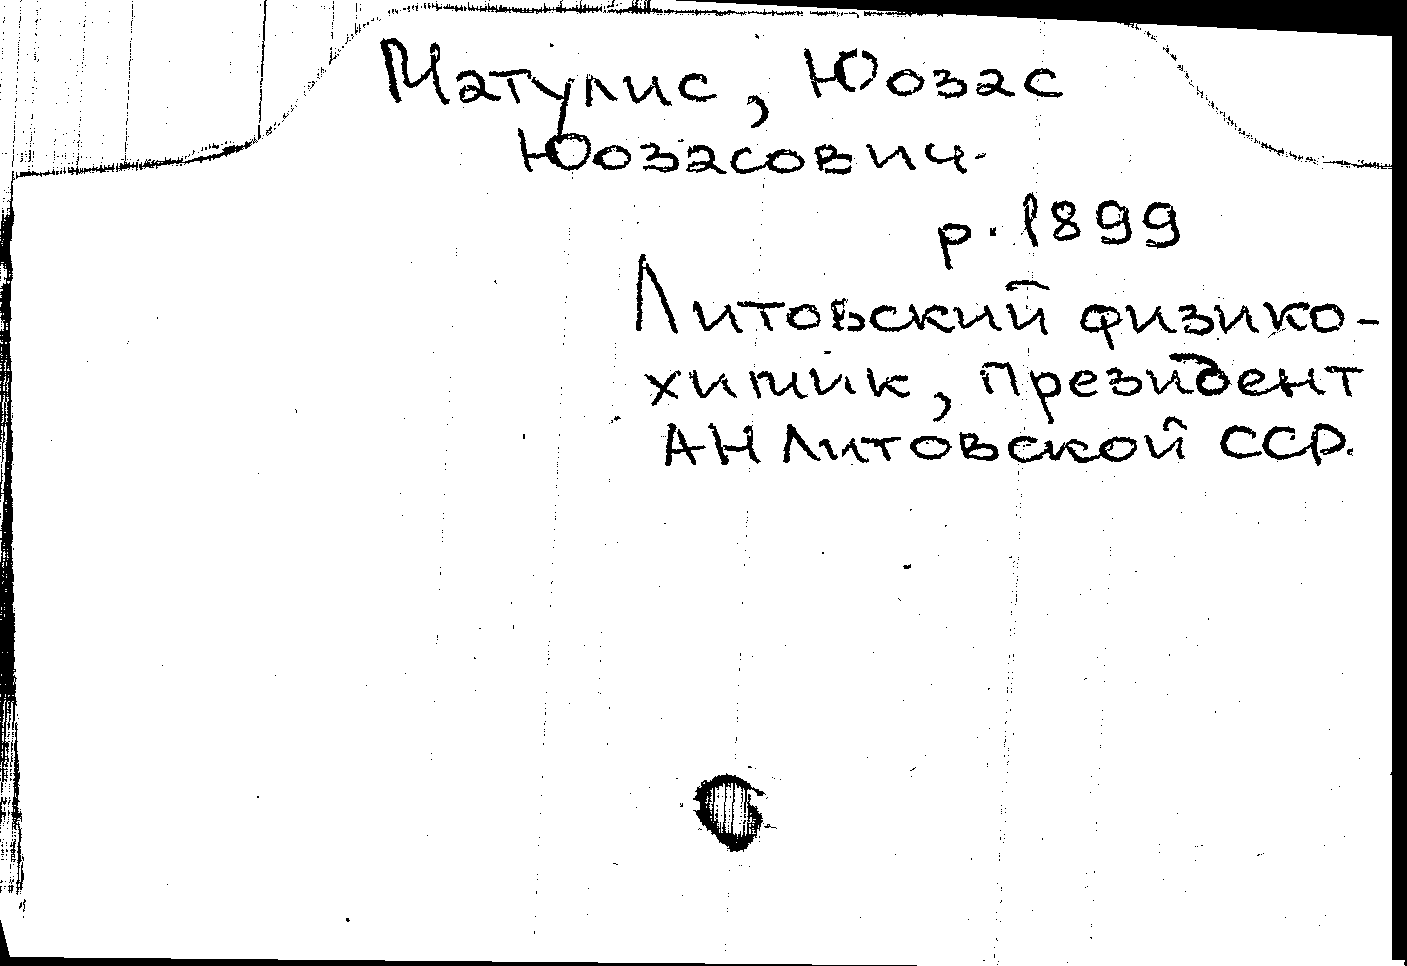 Матулис, Юозас
Юозасович.
р. 1899
Литовский физико-
химик, президент
АН Литовской ССР.